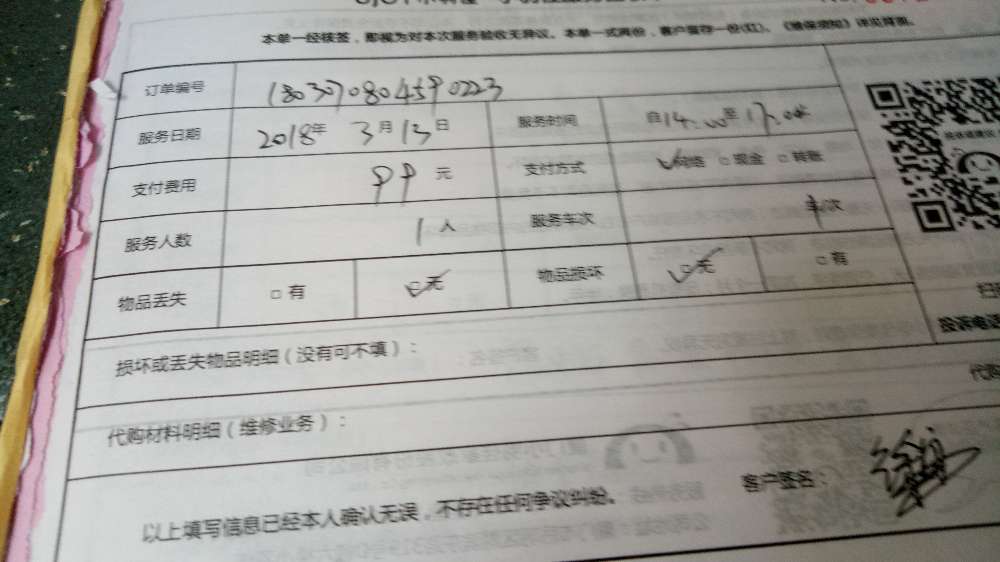 本单一经核签，即视为对本次服务验收无异议。本单一式两份，客户留存一份(红)。《维保须知》详见背面。
订单编号 1803070804590223
服务日期 2018年 3月13日 服务时间 自14:00至17:00
支付费用 99元 支付方式 网络 □现金 □转账
服务人数 1人 服务车次 次
物品丢失 □有 无 物品损坏 无 □有
损坏或丢失物品明细（没有可不填）：
投诉电话
代购材料明细（维修业务）：
代购
以上填写信息已经本人确认无误，不存在任何争议纠纷。 客户签名：